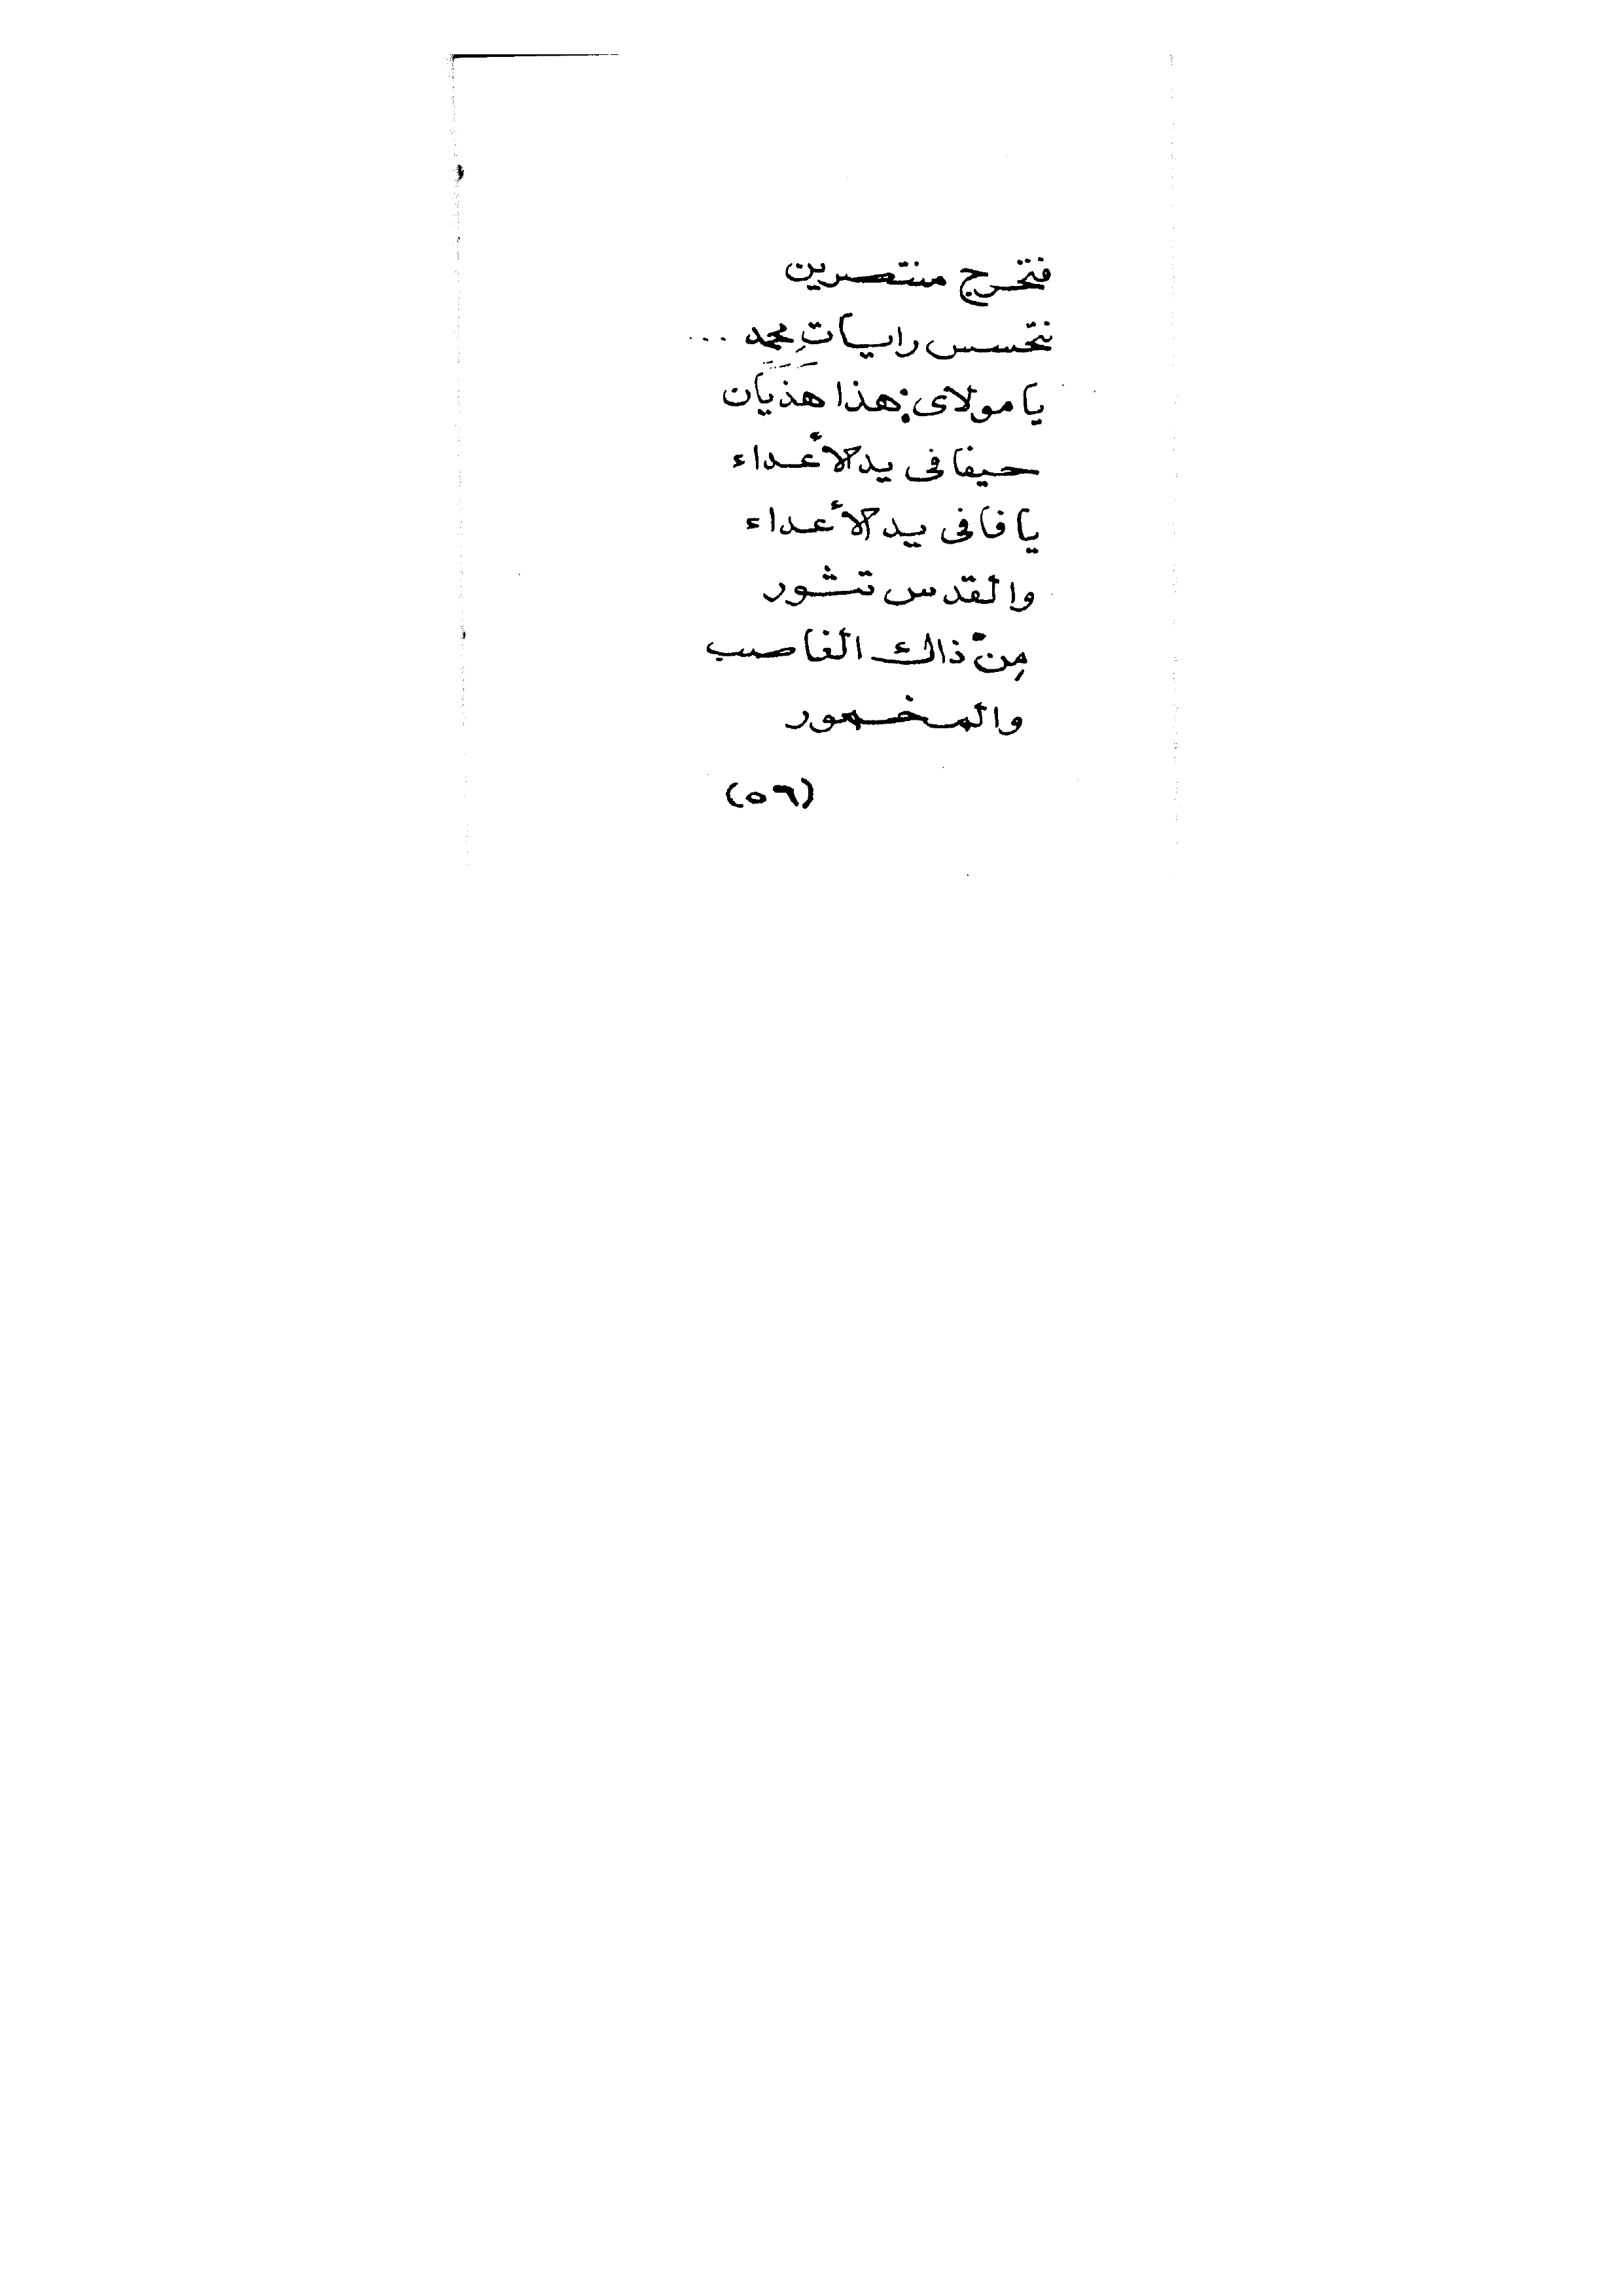 فتخرج منتصرين
نتحسس رايـات محمد ...
يا مولاى : هذا هذيان
حيفا فى يد الأعداء
يافا فى يد الأعداء
والقدس تثور
مِنْ ذاك الغاصب
والمخمور
(٥٦)